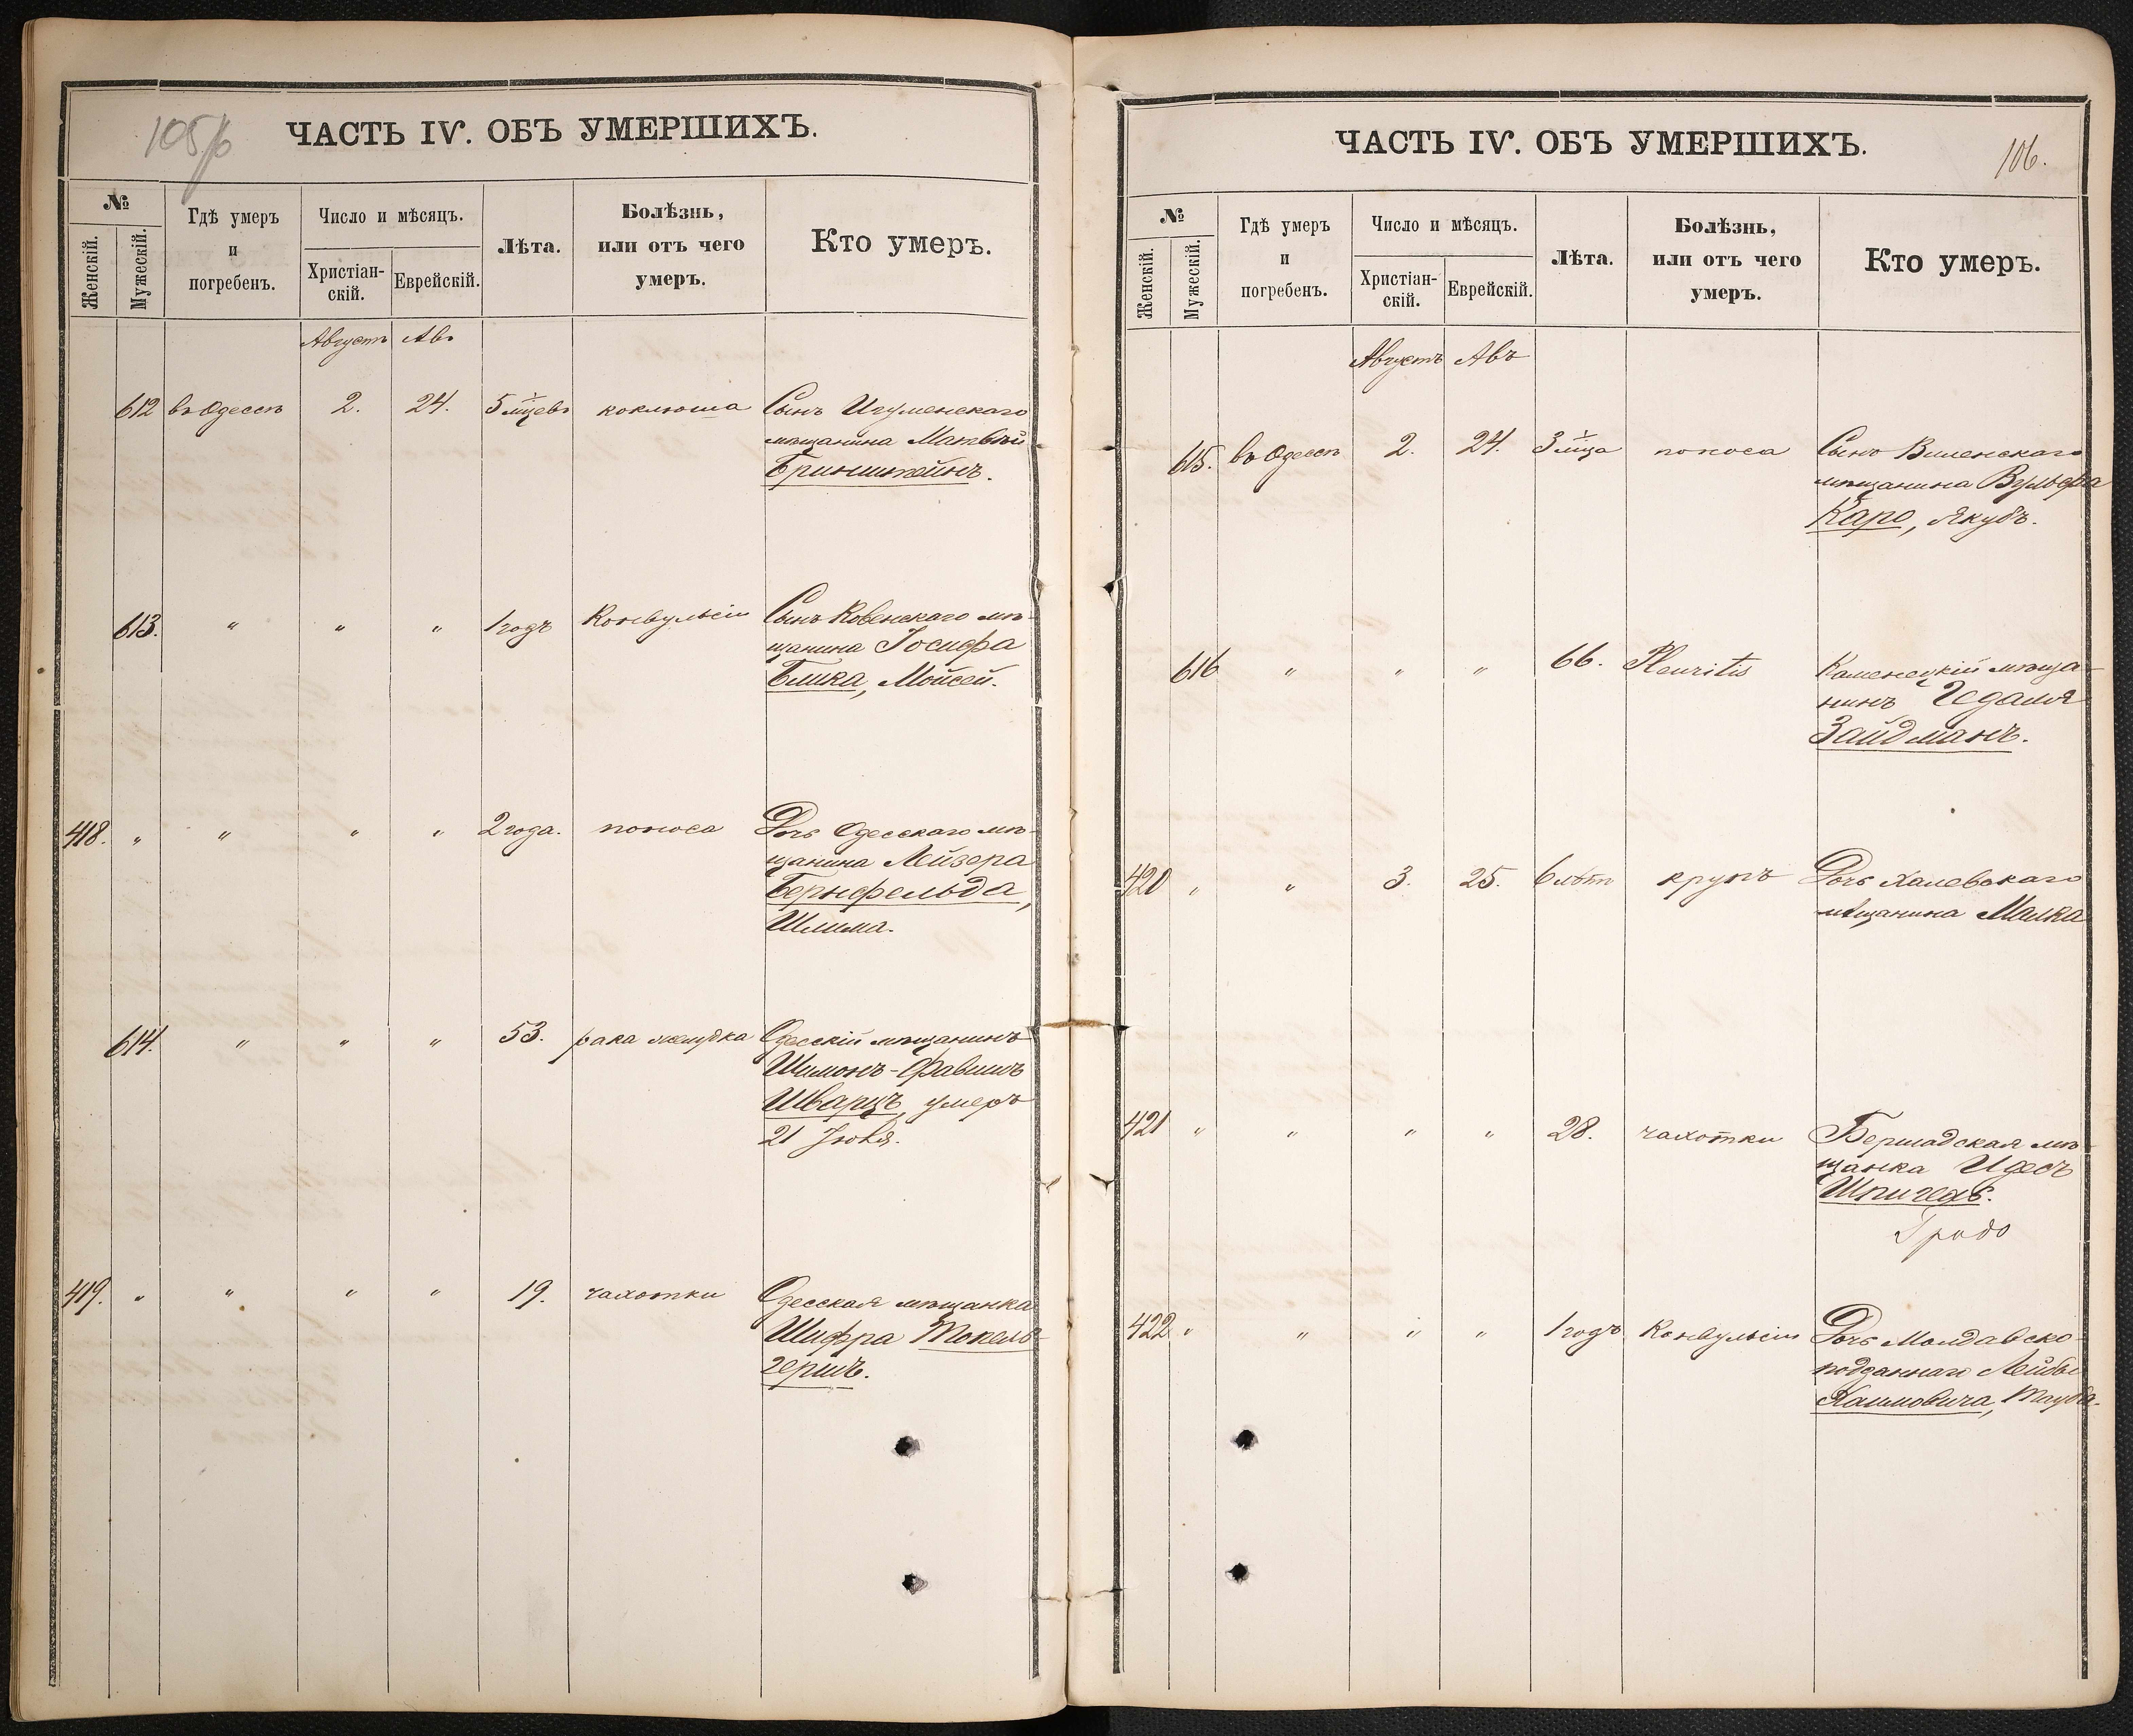 105/6
ЧАСТЬ IV. ОБЪ УМЕРШИХЪ.
№
Женскій.
Мужескій.
Гдѣ умеръ
и
погребенъ.
Число и мѣсяцъ.
Христіан-
скій.
Еврейскій.
Лѣта.
Болѣзнь,
или отъ чего
умеръ.
Кто умеръ.
Августъ Авъ
612 въ Одессѣ 2. 24. 5 мцевъ коклюша Сынъ Игуменскаго
мѣщанина Матвѣй
Бринштейнъ.
613. " " " 1 годъ Конвульсіи Сынъ Ковенскаго мѣ-
щанина Іосифа
Блика, Мойсей.
418. " " " " 2 года. поноса Дочь Одесскаго мѣ-
щанина Лейзера
Бернфельда,
Шлима.
614. " " " 53. рака желудка Одесскій мѣщанинъ
Шимонъ-Фавишъ
Шварцъ, умеръ
21 Іюля.
419. " " " " 19. чахотки Одесская мѣщанка
Шифра Токель-
герить.
ЧАСТЬ IV. ОБЪ УМЕРШИХЪ.
106.
№
Женскій.
Мужескій.
Гдѣ умеръ
и
погребенъ.
Число и мѣсяцъ.
Христіан-
скій.
Еврейскій.
Лѣта.
Болѣзнь,
или отъ чего
умеръ.
Кто умеръ.
Августъ Авъ
615. въ Одессѣ 2. 24. 3 мца поноса Сынъ Виленскаго
мѣщанина Вульфа
Каро, Якубъ.
616 " " " 66. Pleuritis Каменецкій мѣща-
нинъ Гедалія
Зайдманъ.
420 " " 3. 25. 6 лѣтъ крупъ Дочь Халевскаго
мѣщанина Малка
421 " " " " 28. чахотки Бершадская мѣ-
щанка Идесъ
Шпигель.
422 " " " " 1 годъ Конвульсіи Дочь Молдавско-
подданнаго Лейбы
Хаимовича, Тауба.